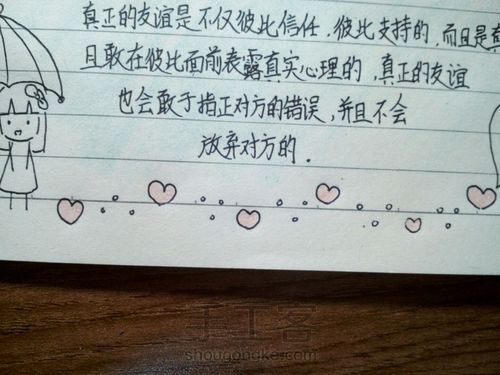 真正的友谊是不仅彼此信任、彼此支持的,而且是
且敢在彼此面前表露真实心理的,真正的友谊
也会敢于指正对方的错误,并且不会
放弃对方的.
手工客
shougongke.com